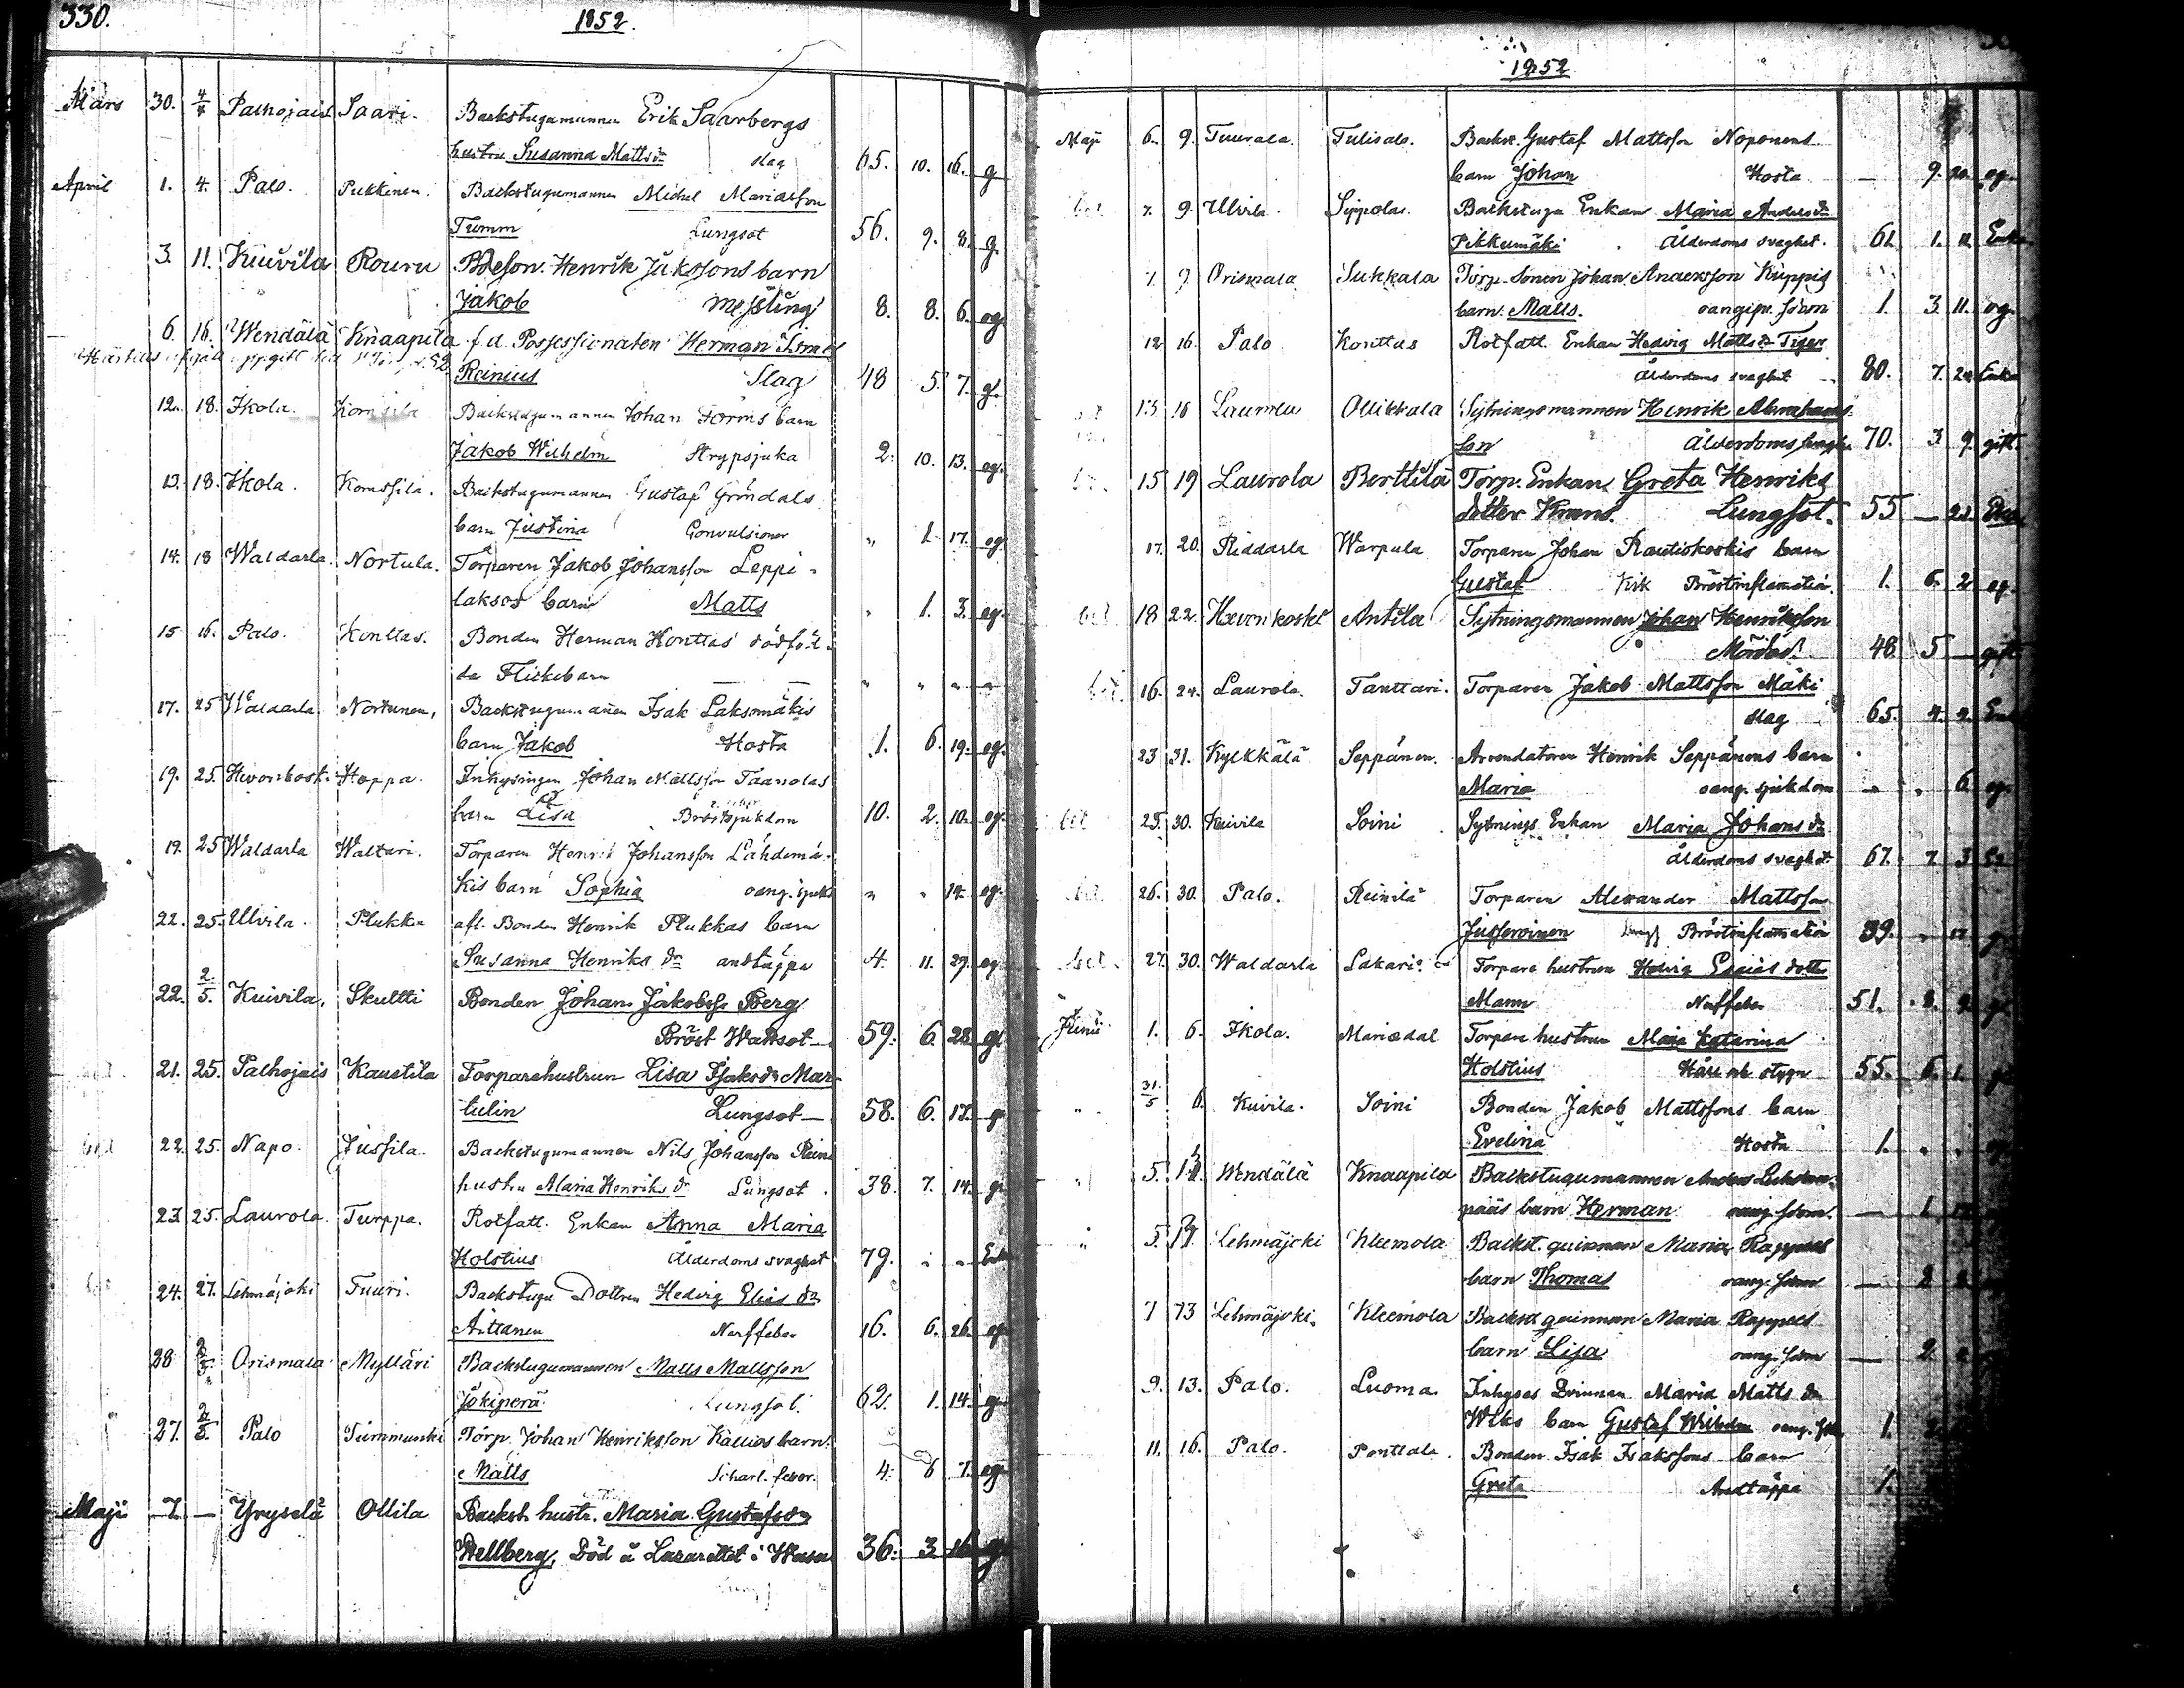 330.
1852.
Mars 30. 4/4 Palhojais Saari. Backstugumannen Erik Saarbergs
hustru Susanna Mattsdr slag 65. 10. 16. g
April 1. 4. Palo. Pukkinen. Backstugumannen Michel Mariasson
Tumm Lungsot 56. 9. 8. g
3. 11. Kuivila Rouru Bdeson. Henrik Jakssons barn
Jakob messling 8. 8. 6. og
6. 16. Wendälä Knaapila f.d. Possessionaten Herman Israel
Reinius Slag 48 5. 7. gf.
12. 18. Ikola. Backstugumannen Johan Forms barn
Jakob Wilhelm Strypsjuka 2. 10. 13. og.
13. 18. Ikola. Komsila. Backstugumannen Gustaf Gröndals
barn Justina Convulsioner " 1. 17. og
14. 18 Waldarla. Nortula. Torparen Jakob Johansson Leppi-
laksos barn Matts " 1. 3. og.
15 16. Palo. Konttas. Bonden Herman Konttas dödföd-
da Flickebarn " " " "
17. 25 Waldarla Nortunen, Backstugumañen Isak Laksomäkis
barn Jakob Hosta 1. 6. 19. og.
19. 25. Hevonkoski Hoppa. Inhysingen Johan Mattsson Taanolas
barn Lisa Bröstsjukdom 10. 2. 10. og.
19. 25 Waldarla Waltari. Torparen Henrik Johansson Lahdemä-
kis barn Sophia oang. sjukd " " 14. og.
22. 25. Ulvila. Plukka afl. Bonden Henrik Plukkas barn
Susanna Henriks dr andtäppa 4. 11. 29. og
22. 2/5. Kuivila, Skultti Bonden Johan Jakobsso Berg
Bröst Wattsot 59. 6. 28. g
21. 25. Palhojais Kaustila Torparehustrun Lisa Isaksdr Mar-
tulin Lungsot 58. 6. 17. g
22. 25. Napo. Jussila. Backstugumannen Nils Johansson Rein
hustru Maria Henriks dr Lungsot. 38. 7. 14. g.
23. 25. Laurola. Turppa. Rotfatt. Enkan Anna Maria
Holstius Ålderdoms svaghet 79. " "
24. 27. Lehmäjoki Tuuri. Backstugu Dottren Hedvig Elias dr
Aittanen Nerffeber 16. 6. 26. og
28 2/5. Orismala Mylläri Backstugumannen Matts Mattsson
Jokiperä Lungsot. 62. 1. 14. g
27. 2/5. Palo Tummunki Torp. Johan Henriksson Kallios barn.
Matts Scharl. feber. 4. 6 7. og
Maji 7. — Yryselä Ollila Backst. hustr. Maria Gustafsdr
Hellberg, Död å Lazarettet i Wasa 36. 3. 16. g
1852
Maji 6. 9. Tuurala. Tulisalo. Backst. Gustaf Mattsson Noponens
barn Johan Hosta — 9. 20. og.
bet 7. 9. Ulvila. Sippolas. Backstugu Enkan Maria Andersdr
Pikkumäki Ålderdoms svaghet. 61. 1. 11. Enka
7. 9. Orismala Sukkala Torp. Sonen Johan Andersson Kuppis
barn Matts. oangifn. sådom 1. 3 11. og.
12 16. Palo Konttas Rotfatt. Enkan Hedvig Mattsdr Tiger
Ålderdoms svaghet 80. 7. 24 Enka
13 16 Laurola Ollikkala Sytningsmannen Henrik Abrahams
son Ålderdoms svaghet 70. 3 9. gift.
15 19 Laurola Berttilä Torp. Enkan Greta Henriks
dotter Kinns. Lungsot. 55 — 23.
17. 20. Riddarla Warpula Torparen Johan Rautiskoskis barn
Gustaf Kik Bröstinflamatio. 1. 6. 2 og.
bet 18 22. Hevonkoski Antila Sytningsmannen Johan Henriksson
Mördad. 48. 5 — gift
bet. 16. 24. Laurola. Tanttari. Torparen Jakob Mattsson Mäki
slag 65. 4. 2.
23 31. Kylkkälä Seppänen. Arrendatoren Henrik Seppänens barn
Maria oang. sjukdom " " 6. og.
bet 25. 30. Kuivila Soini Sytnings Enkan Maria Johans dr
Ålderdoms svaghet 67. 7. 3.
26. 30. Palo. Reinilä Torparen Alexander Mattsson
Jusservinen Bröstinflamation 39. "
bet. 27. 30. Waldarla Lakari. Torpare hustrun Hedvig Esaias dotter
Mann Nerffeber 51. 8.
Junii 1. 6. Ikola. Mariedal Torpare hustrun Maria Katarina
Holstius Håll och stygn 55. 6. 1.
" 31/5 6. Kuivila. Soini Bonden Jakob Mattssons barn
Evelina Hosta 1.
" 5. 13 Wendälä Knaapila Backstugumannen Anders
pääs barn Herman oang. sdom. — 1.
" 5. Lehmäjoki Kleemola Backst. quinnan Maria Rappels
barn Thomas oang. sdom — 2
7 13 Lehmäjoki. Kleemola Backst quinnan Maria Rappels
barn Lisa oang. sdom — 2.
9. 13. Palo. Luoma. Inhyses Qvinnan Maria Matts dr
Wiks barn Gustaf Wilhelm oang. 1.
11. 16. Palo. Ponttala. Bonden Isak Isakssons barn
Greta Andtäppa 1.